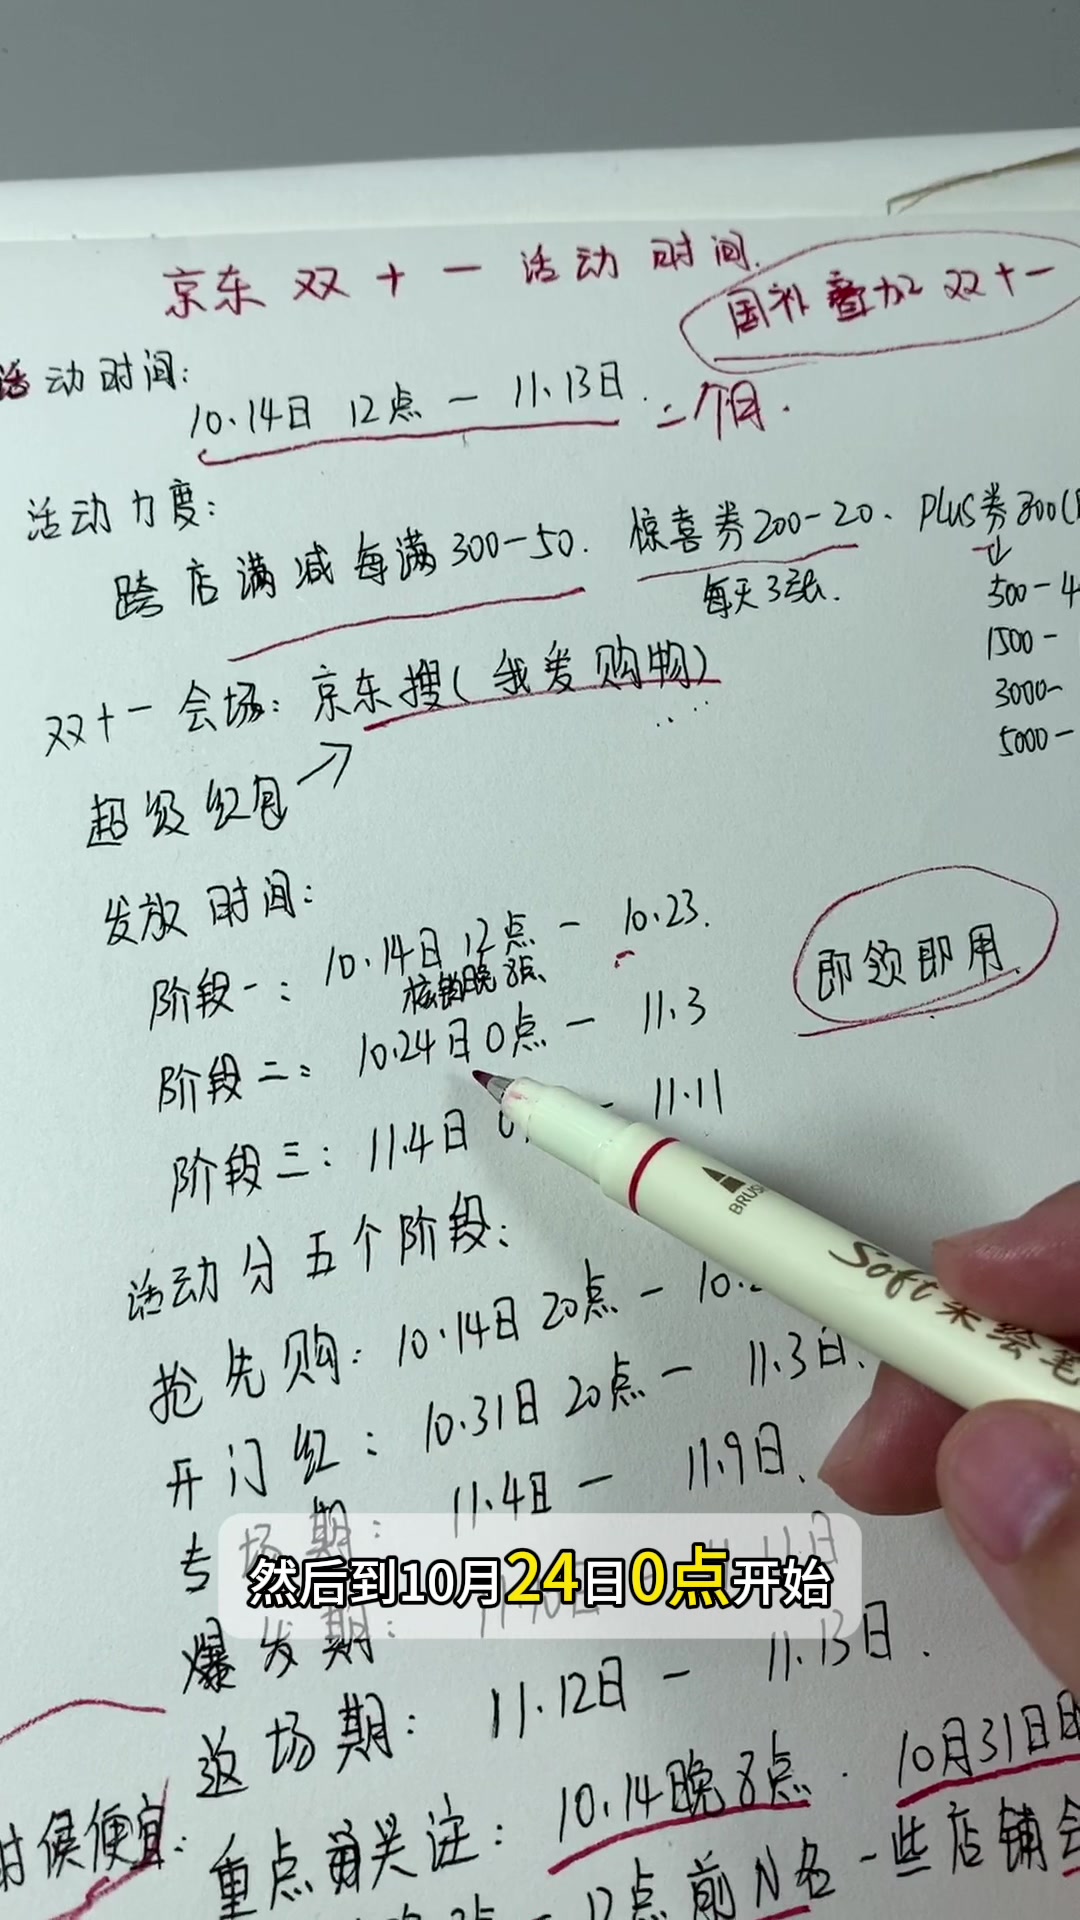 京东双十一活动时间.
国补叠加双十一
活动时间:
10.14日 12点 — 11.13日. 一个月.
活动力度:
跨店满减每满300-50. 惊喜券200-20. Plus券300
每天3张.
500-4
1500-
3000-
5000-
双十一会场: 京东搜(我爱购物)
超级红包
发放时间:
阶段一: 10.14日 12点 — 10.23.
核销晚8点
即领即用
阶段二: 10.24日0点 — 11.3
阶段三: 11.4日 0 - 11.11
活动分五个阶段:
抢先购: 10.14日 20点 — 10.
开门红: 10.31日 20点 — 11.3日.
专场期: 11.4日 — 11.9日.
然后到10月24日0点开始
爆发期:
返场期: 11.12日 — 11.13日.
重点关注: 10.14晚8点. 10月31日
时候便宜:
12点前N名 一些店铺会
BRUSH
Soft柔绘笔